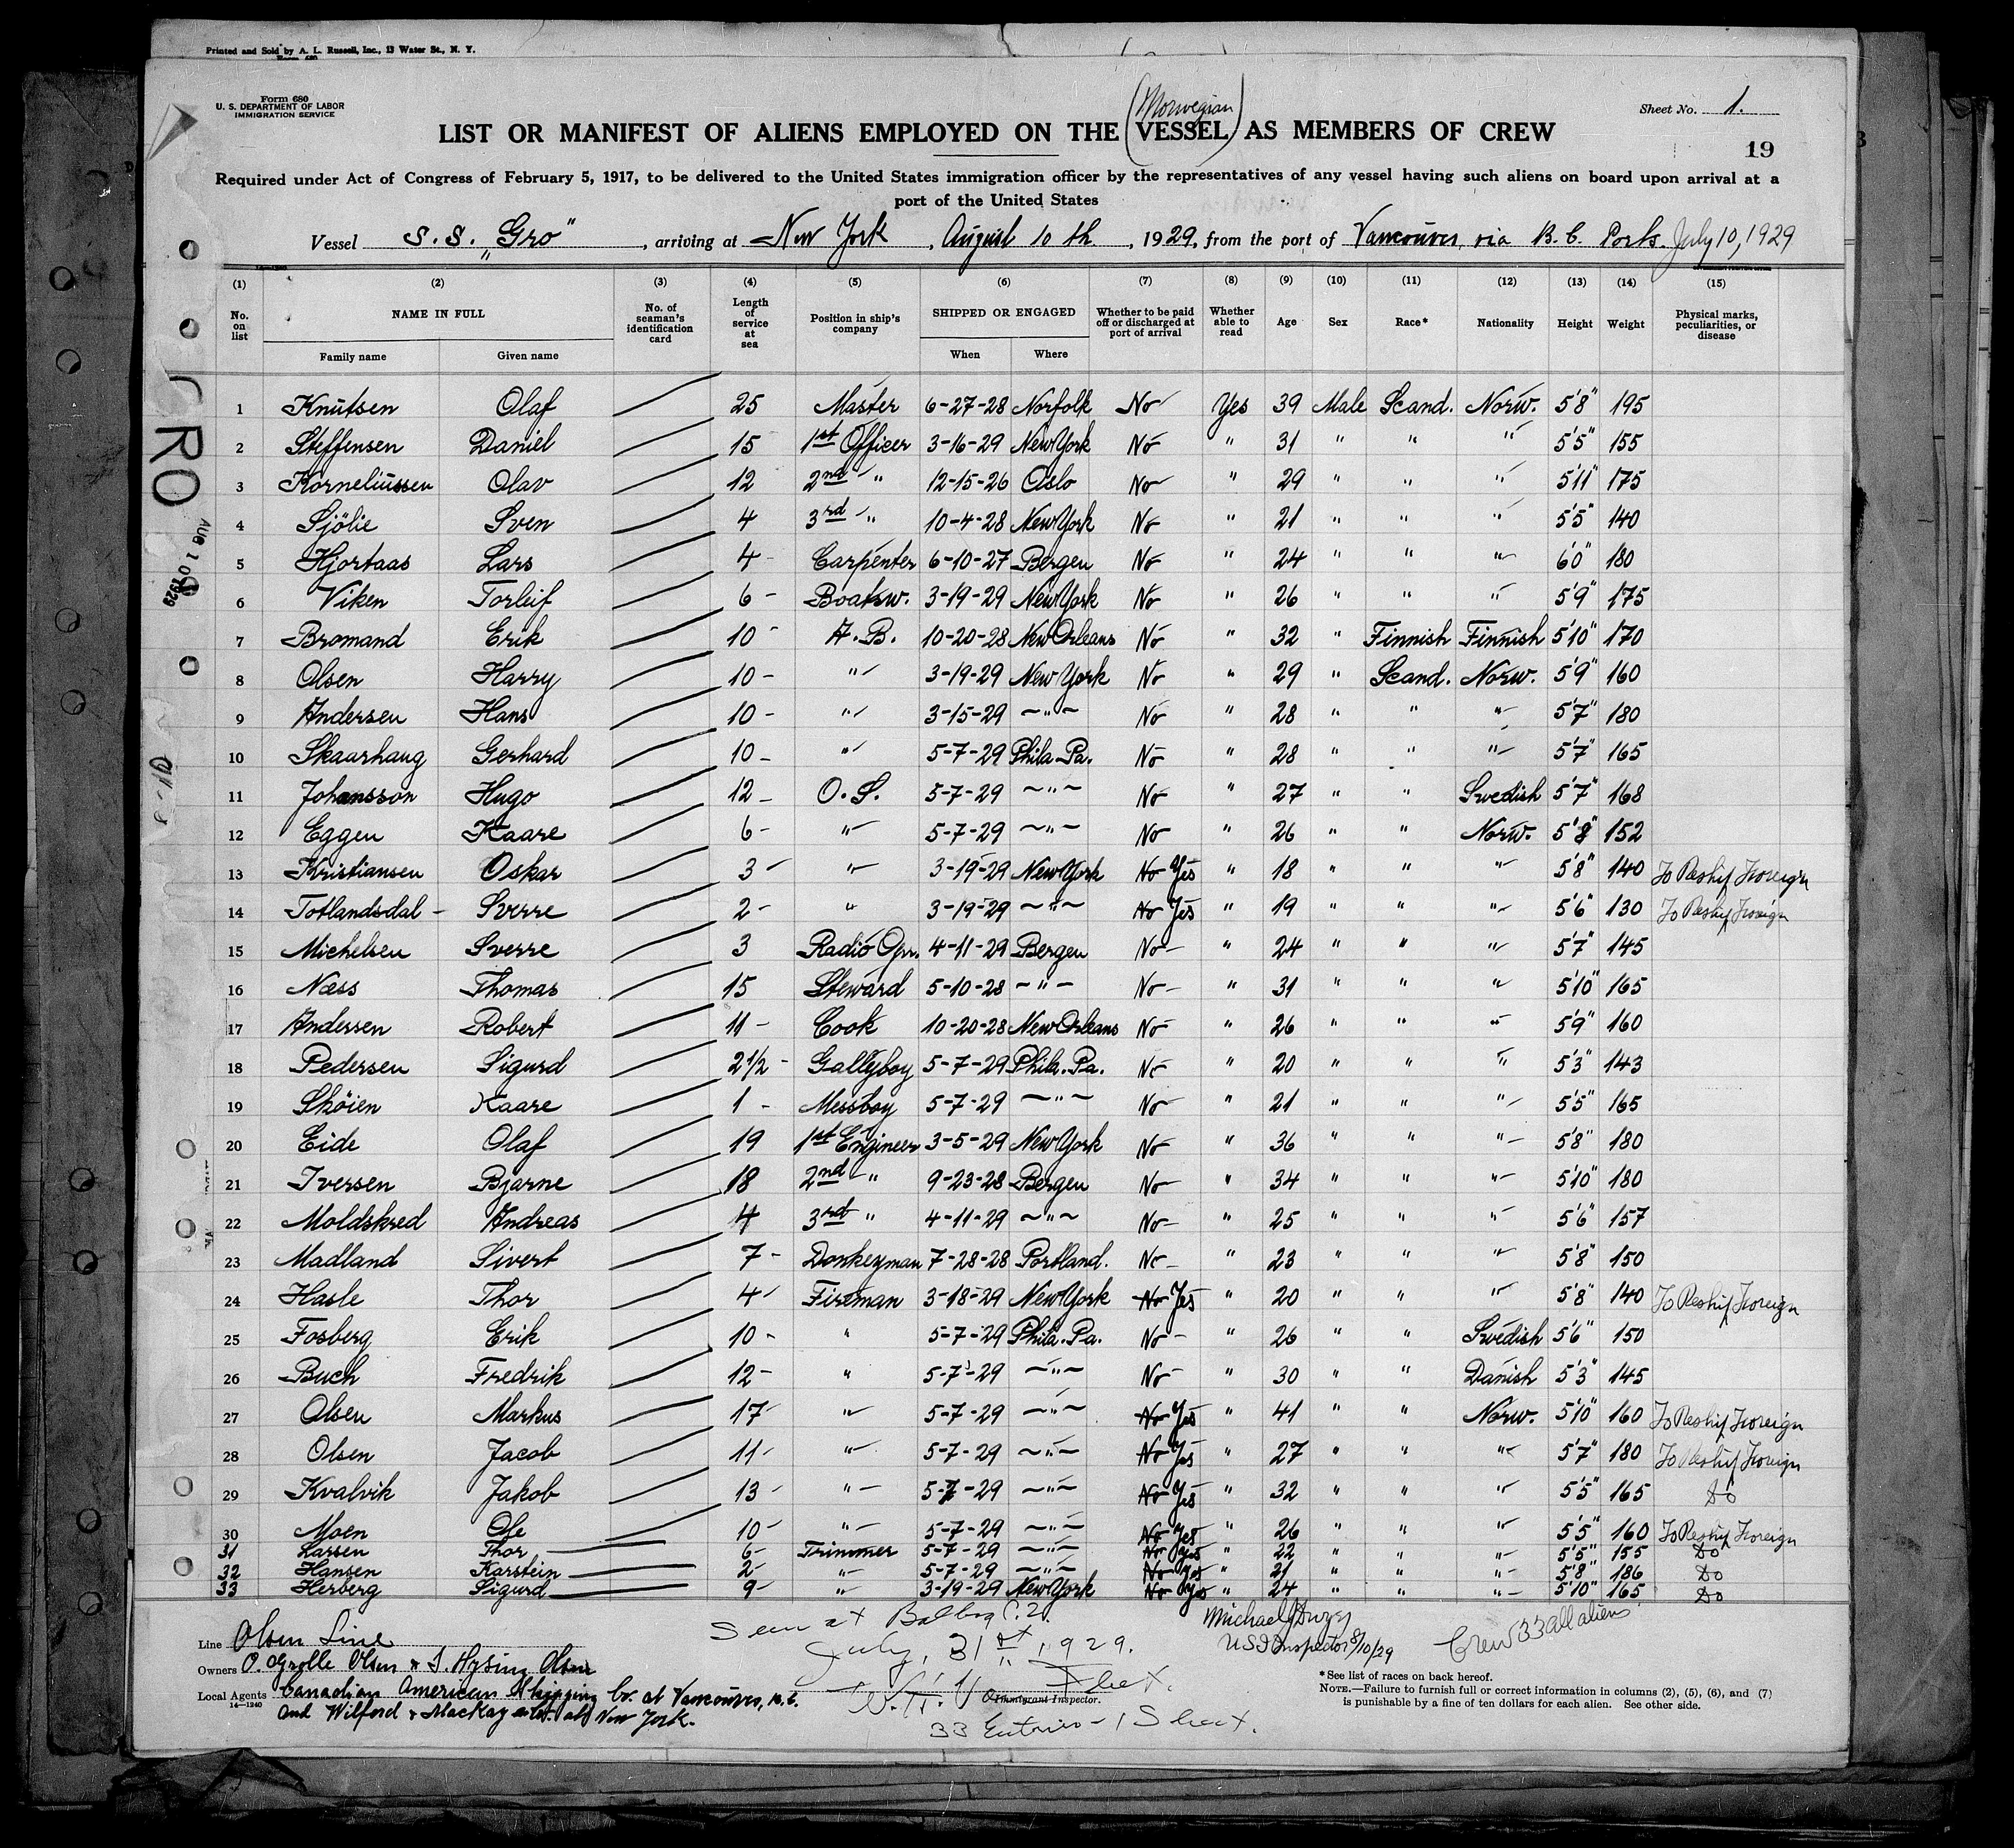 Printed and Sold by A. L. Russell, Inc., 13 Water St., N. Y.
Form 680
U. S. DEPARTMENT OF LABOR
IMMIGRATION SERVICE
Sheet No. 1.
(Norwegian)
LIST OR MANIFEST OF ALIENS EMPLOYED ON THE VESSEL AS MEMBERS OF CREW
19
Required under Act of Congress of February 5, 1917, to be delivered to the United States immigration officer by the representatives of any vessel having such aliens on board upon arrival at a
port of the United States
Vessel S.S. "Gro", arriving at New York, August 10th, 1929, from the port of Vancouver, via B.C. Ports July 10, 1929
(1) (2) (3) (4) (5) (6) (7) (8) (9) (10) (11) (12) (13) (14) (15)
No. on list NAME IN FULL Family name Given name No. of seaman's identification card Length of service at sea Position in ship's company SHIPPED OR ENGAGED When Where Whether to be paid off or discharged at port of arrival Whether able to read Age Sex Race* Nationality Height Weight Physical marks, peculiarities, or disease
1 Knutsen Olaf 25 Master 6-27-28 Norfolk No Yes 39 Male Scand. Norw. 5'8" 195
2 Steffensen Daniel 15 1st Officer 3-16-29 New York No " 31 " " " 5'5" 155
3 Korneliussen Olav 12 2nd " 12-15-26 Oslo No " 29 " " " 5'11" 175
4 Sjölie Sven 4 3rd " 10-4-28 New York No " 21 " " " 5'5" 140
5 Hjortaas Lars 4 Carpenter 6-10-27 Bergen No " 24 " " " 6'0" 180
6 Viken Torleif 6 Boatsw. 3-19-29 New York No " 26 " " " 5'9" 175
7 Bromand Erik 10 A.B. 10-20-28 New Orleans No " 32 " Finnish Finnish 5'10" 170
8 Olsen Harry 10 " 3-19-29 New York No " 29 " Scand. Norw. 5'9" 160
9 Andersen Hans 10 " 3-15-29 " No " 28 " " " 5'7" 180
10 Skaarhaug Gerhard 10 " 5-7-29 Phila. Pa. No " 28 " " " 5'7" 165
11 Johansson Hugo 12 O.S. 5-7-29 " No " 27 " " Swedish 5'7" 168
12 Eggen Kaare 6 " 5-7-29 " No " 26 " " Norw. 5'8" 152
13 Kristiansen Oskar 3 " 3-19-29 New York No Yes " 18 " " " 5'8" 140 To Reship Foreign
14 Totlandsdal Sverre 2 " 3-19-29 " No Yes " 19 " " " 5'6" 130 To Reship Foreign
15 Michelsen Sverre 3 Radio Opr. 4-11-29 Bergen No " 24 " " " 5'7" 145
16 Næss Thomas 15 Steward 5-10-28 " No " 31 " " " 5'10" 165
17 Anderssen Robert 11 Cook 10-20-28 New Orleans No " 26 " " " 5'9" 160
18 Pedersen Sigurd 2 1/2 Galleyboy 5-7-29 Phila. Pa. No " 20 " " " 5'3" 143
19 Skøien Kaare 1 Messboy 5-7-29 " No " 21 " " " 5'5" 165
20 Eide Olaf 19 1st Engineer 3-5-29 New York No " 36 " " " 5'8" 180
21 Iversen Bjarne 18 2nd " 9-23-28 Bergen No " 34 " " " 5'10" 180
22 Moldskred Andreas 4 3rd " 4-11-29 " No " 25 " " " 5'6" 157
23 Madland Sivert 7 Donkeyman 7-28-28 Portland. No " 23 " " " 5'8" 150
24 Hasle Thor 4 Fireman 3-18-29 New York No Yes " 20 " " " 5'8" 140 To Reship Foreign
25 Fosberg Erik 10 " 5-7-29 Phila. Pa. No " 26 " " Swedish 5'6" 150
26 Buch Fredrik 12 " 5-7-29 " No " 30 " " Danish 5'3" 145
27 Olsen Markus 17 " 5-7-29 " No Yes " 41 " " Norw. 5'10" 160 To Reship Foreign
28 Olsen Jacob 11 " 5-7-29 " No Yes " 27 " " " 5'7" 180 To Reship Foreign
29 Kvalvik Jakob 13 " 5-7-29 " No Yes " 32 " " " 5'5" 165 Do
30 Moen Ole 10 " 5-7-29 " No Yes " 26 " " " 5'5" 160 To Reship Foreign
31 Larsen Thor 6 Trimmer 5-7-29 " No Yes " 22 " " " 5'5" 155 Do
32 Hansen Karstein 2 " 5-7-29 " No Yes " 21 " " " 5'8" 186 Do
33 Herberg Sigurd 9 " 3-19-29 New York No Yes " 24 " " " 5'10" 165 Do
GRO
AUG 10 1929
Seen at Balboa C.Z.
July, 31st, 1929.
Immigrant Inspector.
33 Entries - 1 Sheet.
Michael
US Inspector 8/10/29
Crew 33 all aliens
Line Olsen Line
Owners O. Grolle Olsen & I. Hysing Olsen
Local Agents Canadian American Shipping Co. at Vancouver, B.C.
14-1240
and Wilford & MacKay at New York.
*See list of races on back hereof.
NOTE.—Failure to furnish full or correct information in columns (2), (5), (6), and (7)
is punishable by a fine of ten dollars for each alien. See other side.